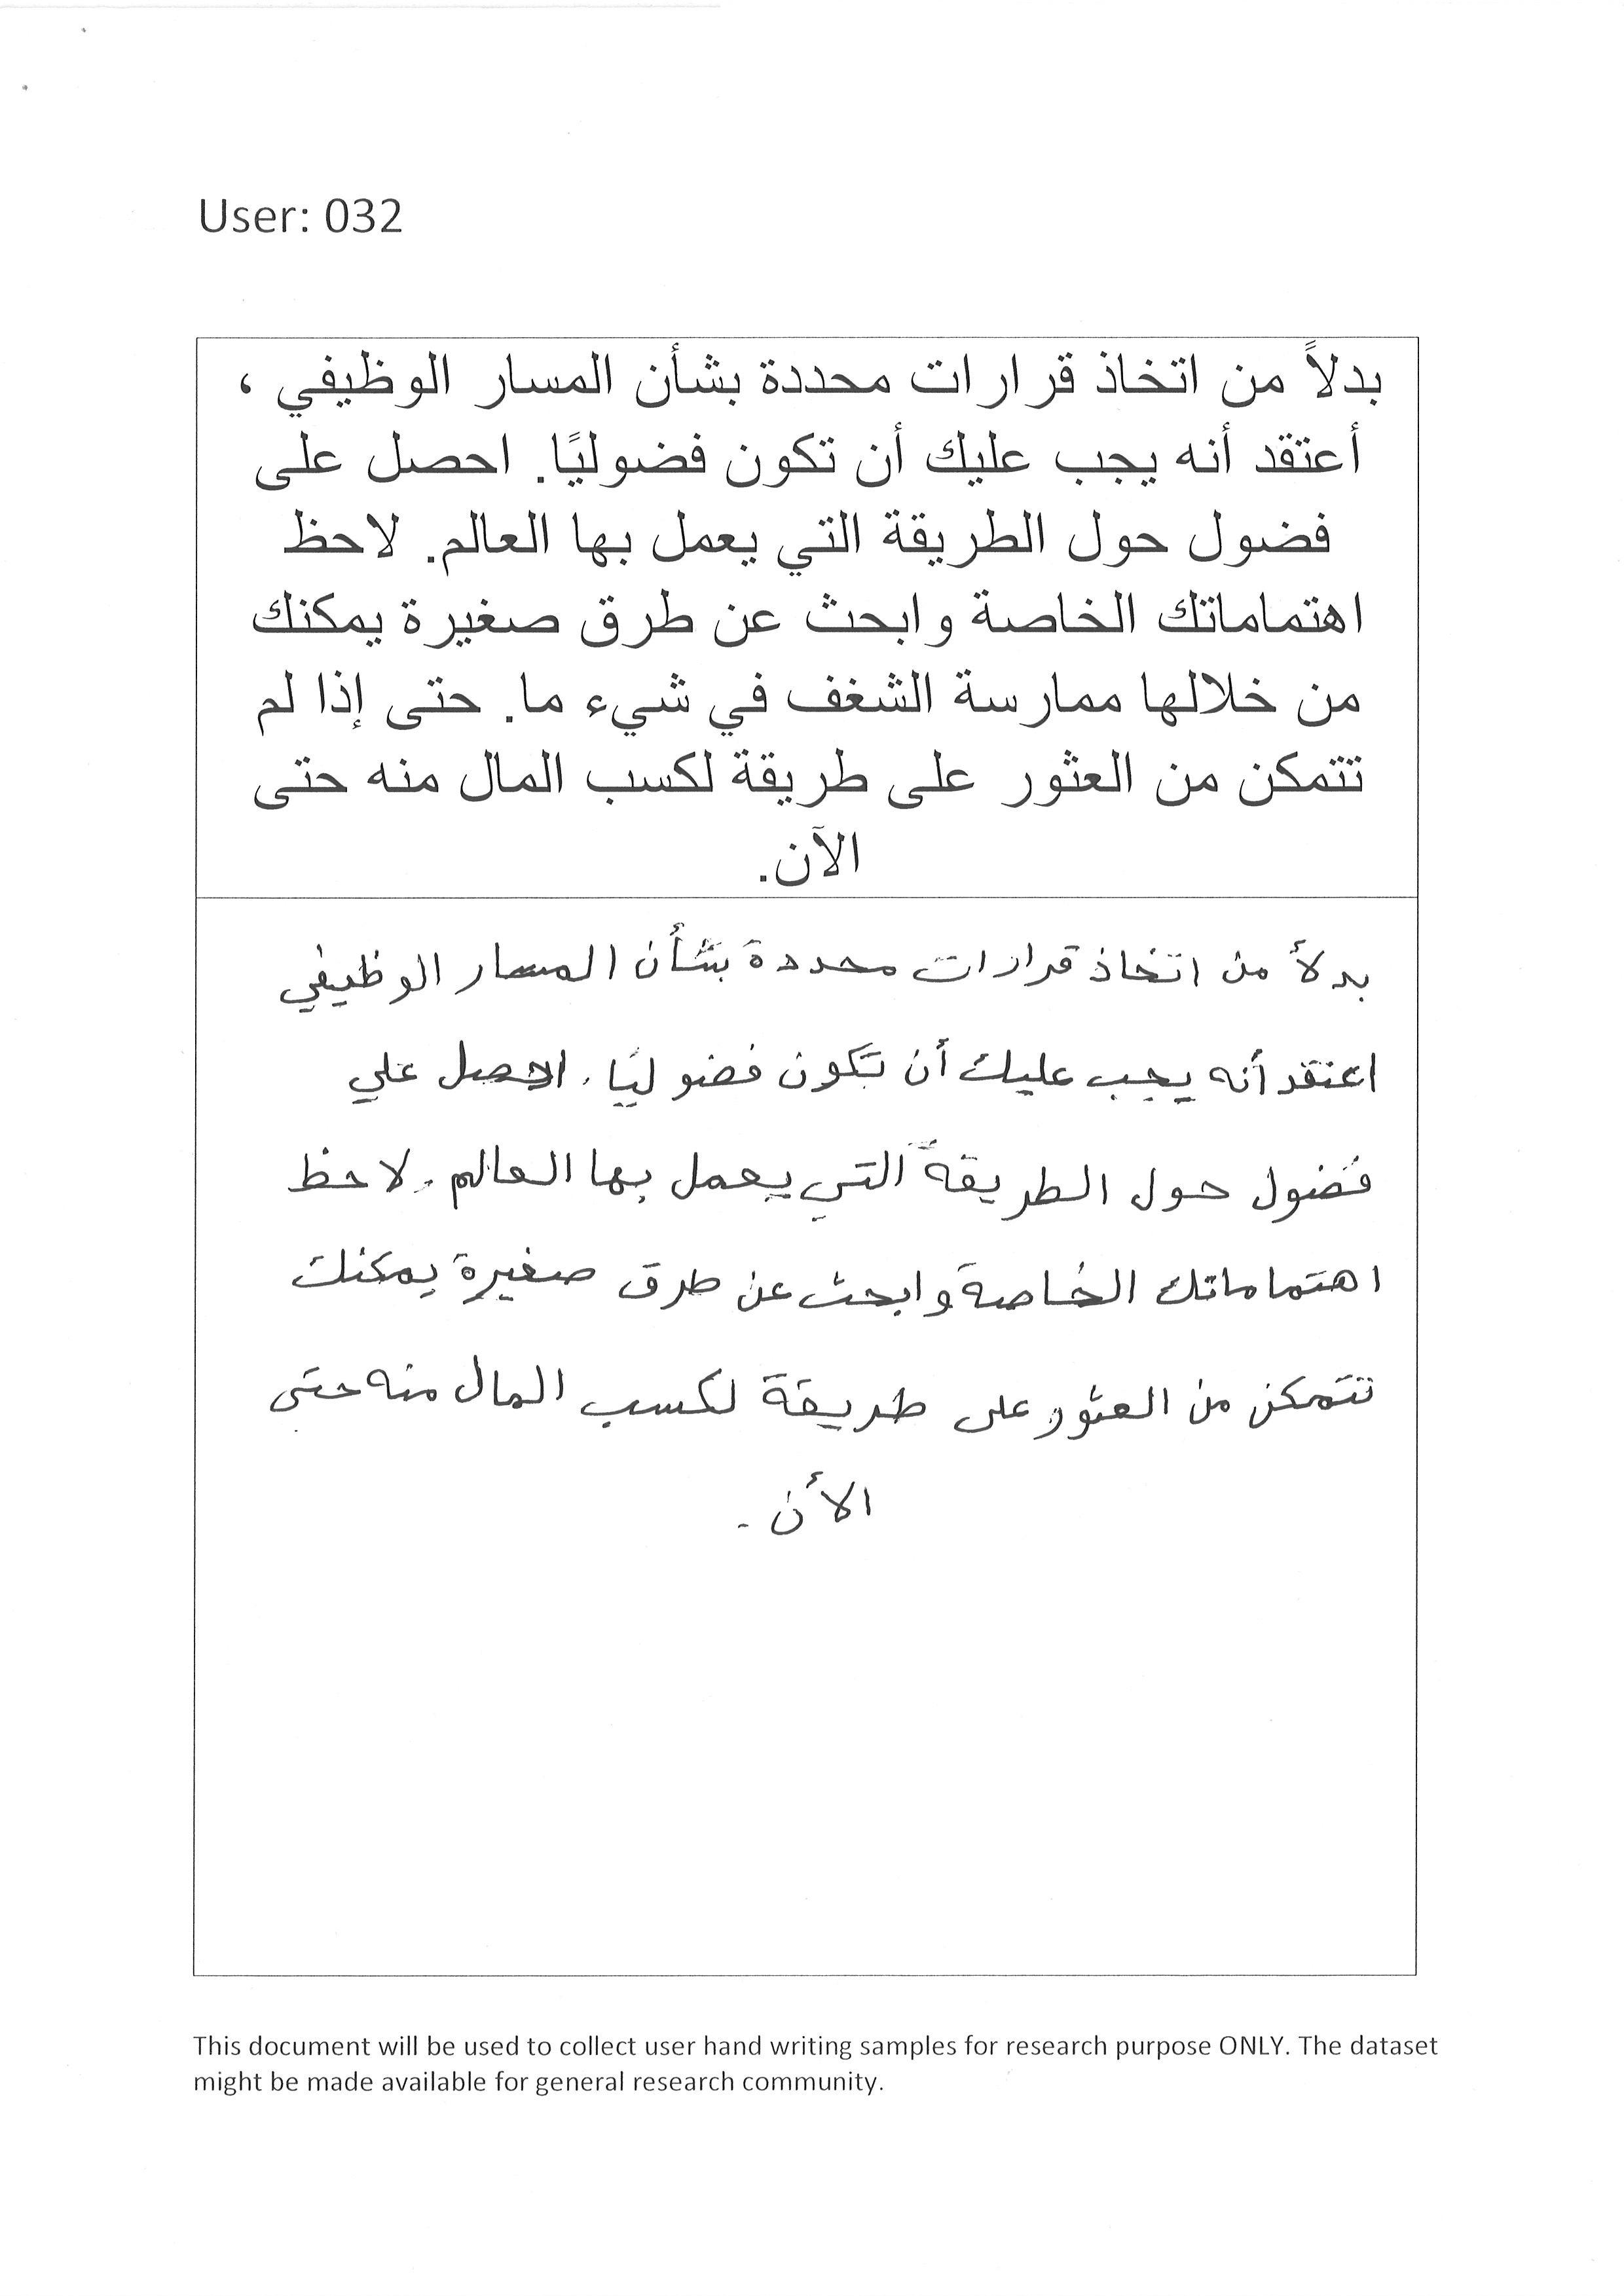 User: 032
بدلاً من اتخاذ قرارات محددة بشأن المسار الوظيفي ،
أعتقد أنه يجب عليك أن تكون فضوليًا. احصل على
فضول حول الطريقة التي يعمل بها العالم. لاحظ
اهتماماتك الخاصة وابحث عن طرق صغيرة يمكنك
من خلالها ممارسة الشغف في شيء ما. حتى إذا لم
تتمكن من العثور على طريقة لكسب المال منه حتى
الآن.
بدلأ من اتخاذ قرارات محددة بشأن المسار الوظيفي
اعتقد أنه يجب عليك أن تكون فضوليًا. احصل علي
فضول حول الطريقة التي يعمل بها العالم. لاحظ
اهتماماتك الخاصة وابحث عن طرق صغيرة يمكنك
تتمكن من العثور على طريقة لكسب المال منه حتى
الأن.
This document will be used to collect user hand writing samples for research purpose ONLY. The dataset
might be made available for general research community.